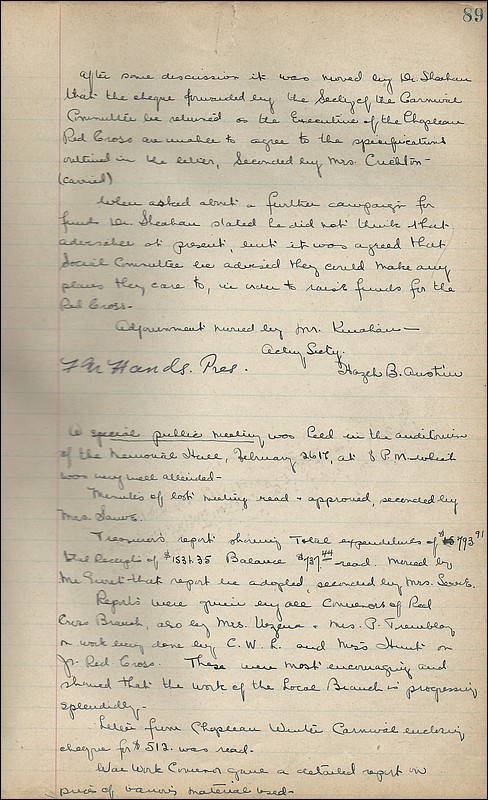 89
After some discussion it was moved by Dr. Sheahan
that the cheque forwarded by the Sec'ty of the Carnival
Committee be returned as the Executive of the Chapleau
Red Cross are unable to agree to the specifications
outlined in the letter, Seconded by Mrs. Crichton -
(carried)
When asked about a further campaign for
funds Dr. Sheahan stated he did not think that
advisable at present, but it was agreed that
Social Committee be advised they could make any
plans they care to, in order to raise funds for the
Red Cross -
Adjournment moved by Mr. Kinahan -
Acting Secty.
F W Hands. Pres. Hazel B. Austin
A special public meeting was held in the auditorium
of the Memorial Hall, February 26th, at 8 P.M. which
was very well attended -
Minutes of last meeting read + approved, seconded by
Mrs.
Treasurer's report showing Total expenditures of $793.91
Receipts of $1531.35 Balance $737.44 read. Moved by
Mr that report be adopted, seconded by Mrs.
Reports were given by all Convenors of Red
Cross Branch, also by Mrs. + Mrs. P. Tremblay
on work being done by C. W. L. and Miss Hunt on
Jr. Red Cross. These were most encouraging and
showed that the work of the Local Branch is progressing
splendidly -
Letter from Chapleau Winter Carnival enclosing
cheque for $512. was read -
War Work Convenor gave a detailed report on
price of various material used -